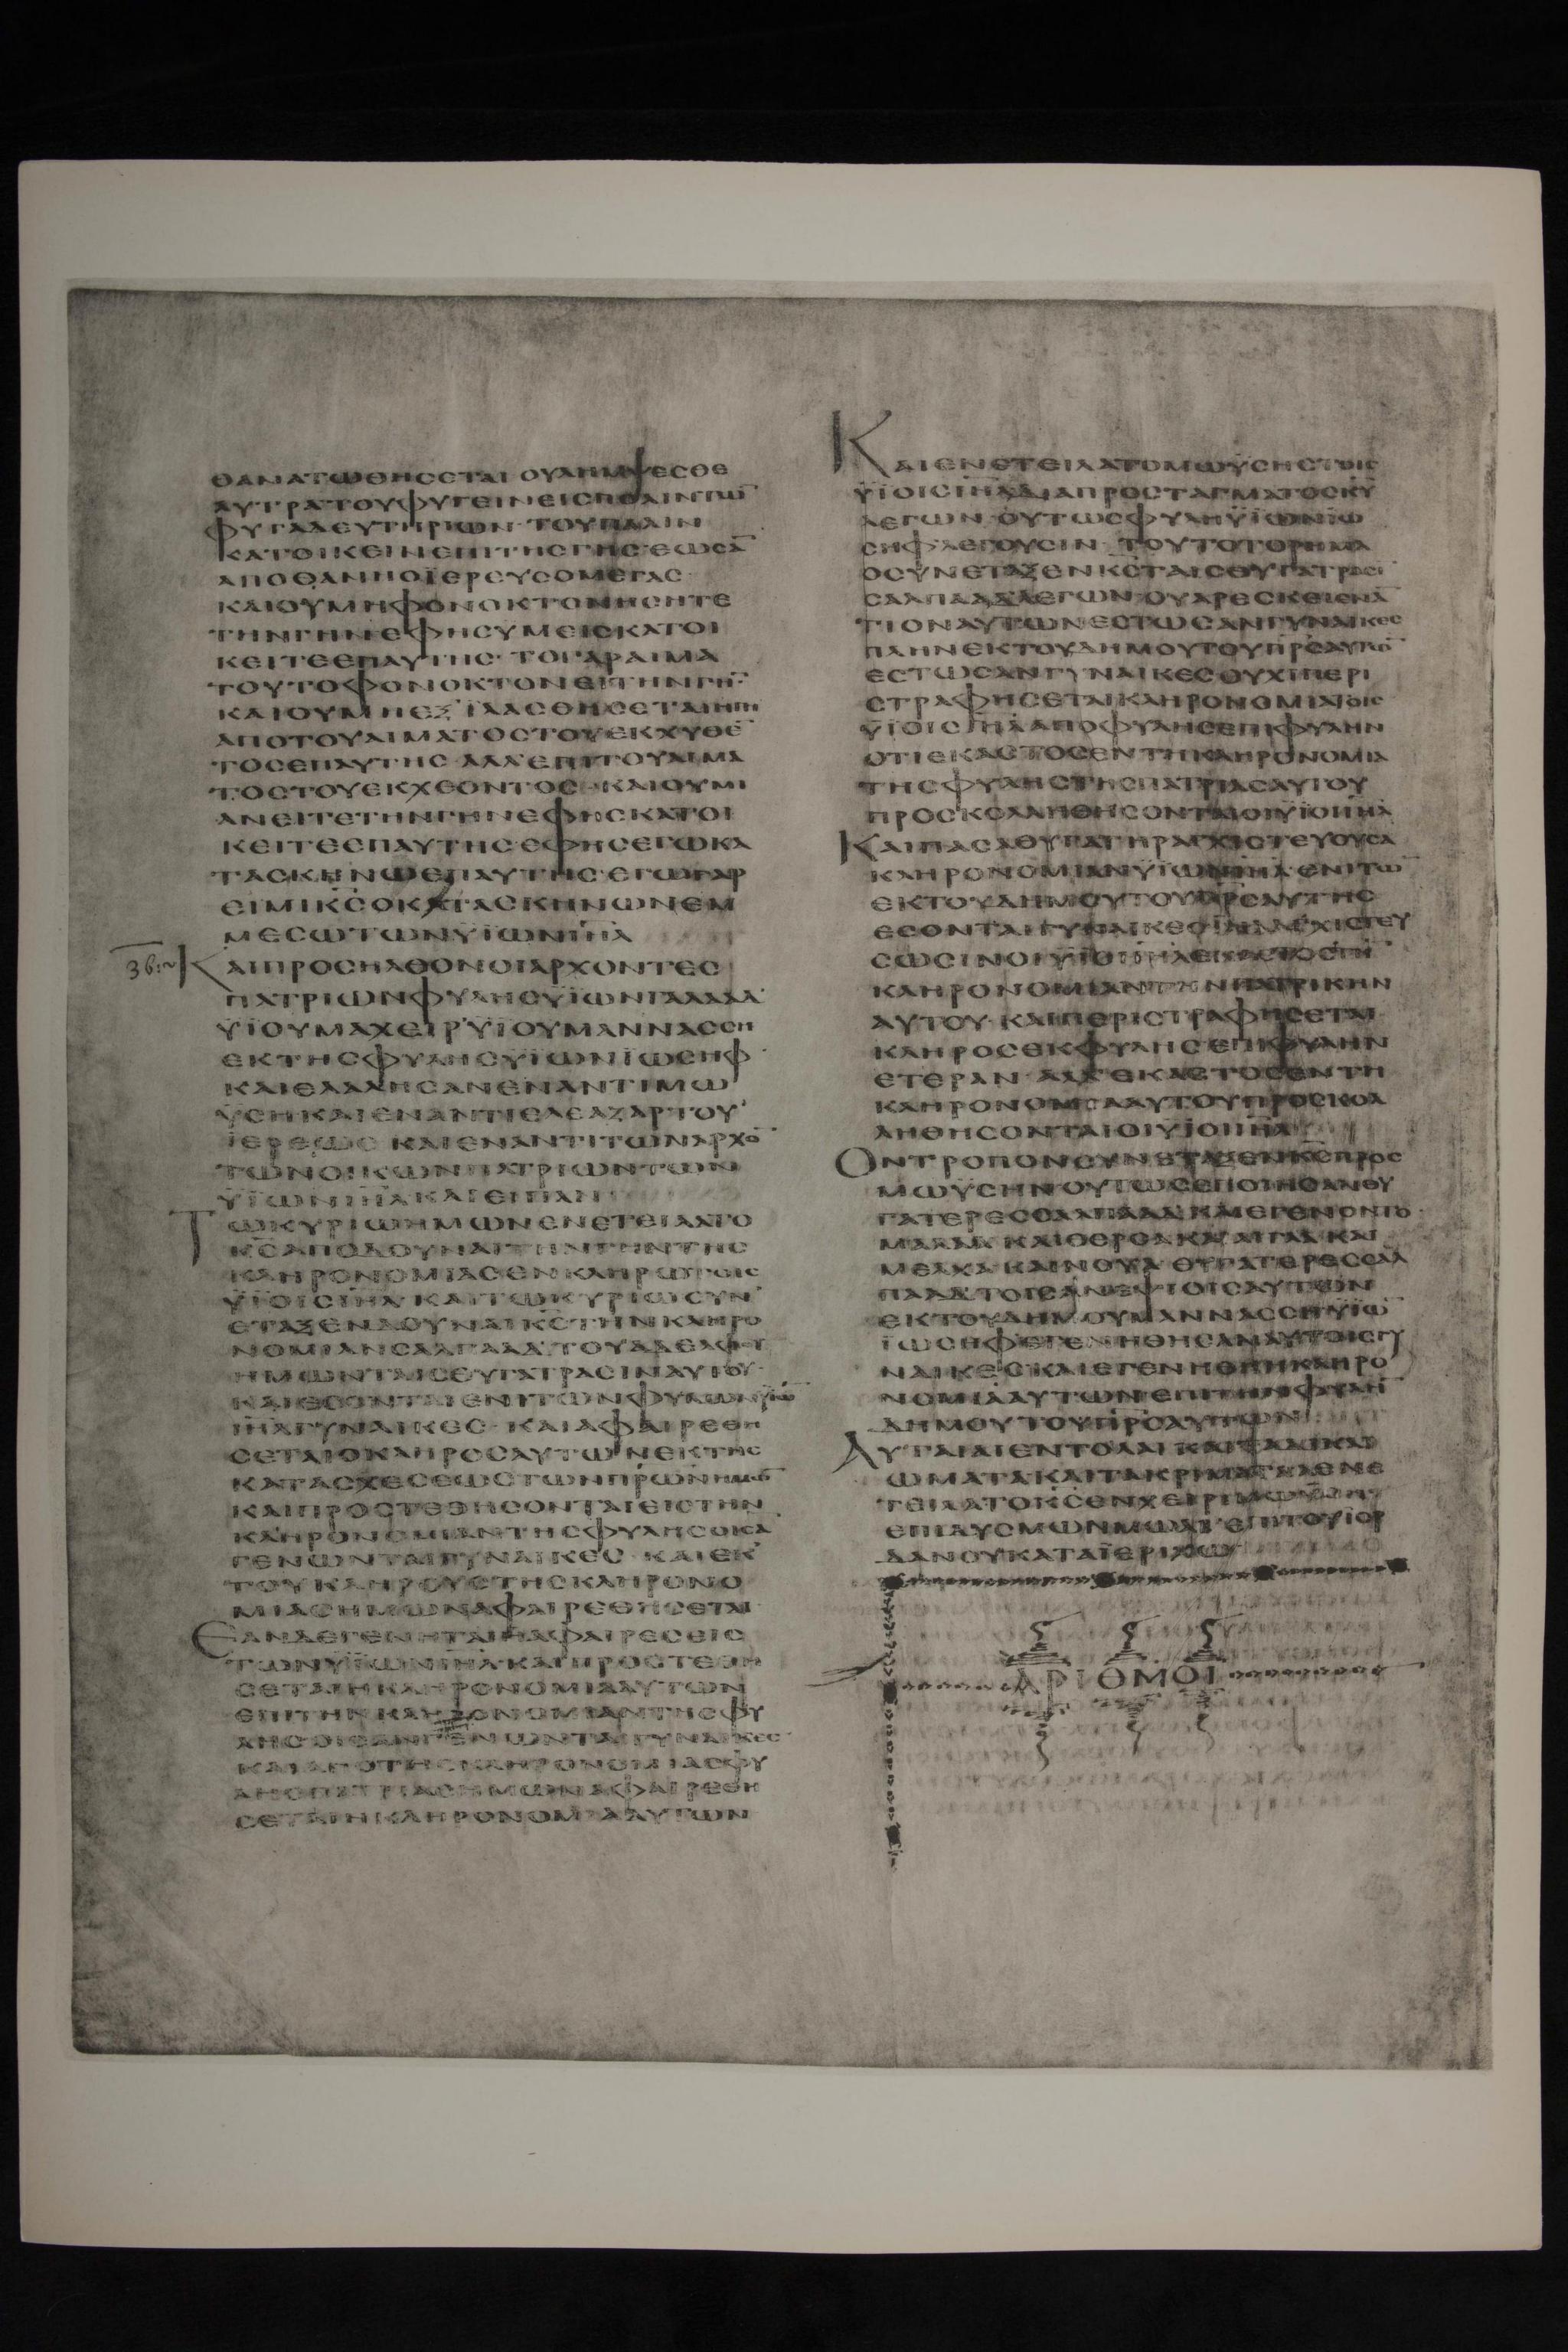 ΘΑΝΑΤΩΘΗΣΕΤΑΙ ΟΥΛΗΜΨΕΣΘΕ
ΛΥΤΡΑΤΟΥΦΥΓΕΙΝΕΙΣΠΟΛΙΝΤΩ̅
ΦΥΓΑΔΕΥΤΗΡΙΩΝ ΤΟΥΠΑΛΙΝ
ΚΑΤΟΙΚΕΙΝΕΠΙΤΗΣΓΗΣ ΕΩΣΑ̅
ΑΠΟΘΑΝΗΟΪΕΡΕΥΣΟΜΕΓΑΣ
ΚΑΙΟΥΜΗΦΟΝΟΚΤΟΝΗΣΗΤΕ
ΤΗΝΓΗΝΕΦΗΣΥΜΕΙΣΚΑΤΟΙ
ΚΕΙΤΕΕΠΑΥΤΗΣ ΤΟΓΑΡΑΙΜΑ
ΤΟΥΤΟΦΟΝΟΚΤΟΝΕΙΤΗΝΓΗ̅
ΚΑΙΟΥΜΗΕΞΪΛΑΣΘΗΣΕΤΑΙΗΓΗ
ΑΠΟΤΟΥΑΙΜΑΤΟΣΤΟΥΕΚΧΥΘΕ̅
ΤΟΣΕΠΑΥΤΗΣ ΑΛΛΕΠΙΤΟΥΑΙΜΑ
ΤΟΣΤΟΥΕΚΧΕΟΝΤΟΣ ΚΑΙΟΥΜΙ
ΑΝΕΙΤΕΤΗΝΓΗΝΕΦΗΣΚΑΤΟΙ
ΚΕΙΤΕΕΠΑΥΤΗΣ ΕΦΗΣΕΓΩΚΑ
ΤΑΣΚΗΝΩΕΠΑΥΤΗΣ ΕΓΩΓΑΡ
ΕΙΜΙΚ̅Σ̅ΟΚΑΤΑΣΚΗΝΩΝΕΜ
ΜΕΣΩΤΩΝΥΪΩΝΙ̅Η̅Λ̅
ΚΑΙΠΡΟΣΗΛΘΟΝΟΙΑΡΧΟΝΤΕΣ
ΠΑΤΡΙΩΝΦΥΛΗΣΥΪΩΝΓΑΛΑΑΔ
ΥΪΟΥΜΑΧΕΙΡ ΥΪΟΥΜΑΝΝΑΣΣΗ
ΕΚΤΗΣΦΥΛΗΣΥΪΩΝΪΩΣΗΦ
ΚΑΙΕΛΑΛΗΣΑΝΕΝΑΝΤΙΜΩ
ΫΣΗΚΑΙΕΝΑΝΤΙΕΛΕΑΖΑΡΤΟΥ
ΪΕΡΕΩΣ ΚΑΙΕΝΑΝΤΙΤΩΝΑΡΧΟ̅
ΤΩΝΟΙΚΩΝΠΑΤΡΙΩΝΤΩΝ
ΥΪΩΝΙ̅Η̅Λ̅ΚΑΙΕΙΠΑΝ
ΤΩΚΥΡΙΩΗΜΩΝΕΝΕΤΕΙΛΑΤΟ
Κ̅Σ̅ΑΠΟΔΟΥΝΑΙΤΗΝΓΗΝΤΗΣ
ΚΛΗΡΟΝΟΜΙΑΣΕΝΚΛΗΡΩΤΟΙΣ
ΥΪΟΙΣΙ̅Η̅Λ̅ ΚΑΙΤΩΚΥΡΙΩΣΥΝ
ΕΤΑΞΕΝΔΟΥΝΑΙΚ̅Σ̅ΤΗΝΚΛΗΡΟ
ΝΟΜΙΑΝΣΑΛΠΑΑΔ ΤΟΥΑΔΕΛΦΟΥ
ΗΜΩΝΤΑΙΣΘΥΓΑΤΡΑΣΙΝΑΥΤΟΥ
ΚΑΙΕΣΟΝΤΑΙΕΝΙΤΩΝΦΥΛΩΝΥΪΩ̅
Ι̅Η̅Λ̅ΓΥΝΑΙΚΕΣ ΚΑΙΑΦΑΙΡΕΘΗ
ΣΕΤΑΙΟΚΛΗΡΟΣΑΥΤΩΝΕΚΤΗΣ
ΚΑΤΑΣΧΕΣΕΩΣΤΩΝΠ̅Ρ̅Ω̅Ν̅ΗΜΩ̅
ΚΑΙΠΡΟΣΤΕΘΗΣΟΝΤΑΙΕΙΣΤΗΝ
ΚΛΗΡΟΝΟΜΙΑΝΤΗΣΦΥΛΗΣΟΙΣΑ̅
ΓΕΝΩΝΤΑΙΓΥΝΑΙΚΕΣ ΚΑΙΕΚ
ΤΟΥΚΛΗΡΟΥΣΤΗΣΚΛΗΡΟΝΟ
ΜΙΑΣΗΜΩΝΑΦΑΙΡΕΘΗΣΕΤΑΙ
ΕΑΝΔΕΓΕΝΗΤΑΙΗΑΦΑΙΡΕΣΕΙΣ
ΤΩΝΥΪΩΝΙ̅Η̅Λ̅ΚΑΙΠΡΟΣΤΕΘΗ
ΣΕΤΑΙΗΚΛΗΡΟΝΟΜΙΑΑΥΤΩΝ
ΕΠΙΤΗΝΚΛΗΡΟΝΟΜΙΑΝΤΗΣΦΥ
ΛΗΣΟΙΣΑΝΓΕΝΩΝΤΑΙΓΥΝΑΙΚΕΣ
ΚΑΙΑΠΟΤΗΣΚΛΗΡΟΝΟΜΙΑΣΦΥ
ΛΗΣΠΑΤΡΙΑΣΗΜΩΝΑΦΑΙΡΕΘΗ
ΣΕΤΑΙΗΚΛΗΡΟΝΟΜΙΑΑΥΤΩΝ
ΚΑΙΕΝΕΤΕΙΛΑΤΟΜΩΫΣΗΣΤΟΙΣ
ΥΪΟΙΣΙ̅Η̅Λ̅ΔΙΑΠΡΟΣΤΑΓΜΑΤΟΣΚ̅Υ̅
ΛΕΓΩΝ ΟΥΤΩΣΦΥΛΗΥΪΩΝΪΩ
ΣΗΦΛΕΓΟΥΣΙΝ ΤΟΥΤΟΤΟΡΗΜΑ
ΟΣΥΝΕΤΑΞΕΝΚ̅Σ̅ΤΑΙΣΘΥΓΑΤΡΑΣΙ
ΣΑΛΠΑΑΔΛΕΓΩΝ ΟΥΑΡΕΣΚΕΙΕΝΑ̅
ΤΙΟΝΑΥΤΩΝΕΣΤΩΣΑΝΓΥΝΑΙΚΕΣ
ΠΛΗΝΕΚΤΟΥΔΗΜΟΥΤΟΥΠ̅Ρ̅Σ̅ΑΥΤΩ̅
ΕΣΤΩΣΑΝΓΥΝΑΙΚΕΣΟΥΧΙΠΕΡΙ
ΣΤΡΑΦΗΣΕΤΑΙΚΛΗΡΟΝΟΜΙΑΤΟΙΣ
ΥΪΟΙΣΙ̅Η̅Λ̅ΑΠΟΦΥΛΗΣΕΠΙΦΥΛΗΝ
ΟΤΙΕΚΑΣΤΟΣΕΝΤΗΚΛΗΡΟΝΟΜΙΑ
ΤΗΣΦΥΛΗΣΤΗΣΠΑΤΡΙΑΣΑΥΤΟΥ
ΠΡΟΣΚΟΛΛΗΘΗΣΟΝΤΑΙΟΙΥΪΟΙΙ̅Η̅Λ̅
ΚΑΙΠΑΣΑΘΥΓΑΤΗΡΑΓΧΙΣΤΕΥΟΥΣΑ
ΚΛΗΡΟΝΟΜΙΑΝΥΪΩΝΙ̅Η̅Λ̅ΕΝΙΤΩ̅
ΕΚΤΟΥΔΗΜΟΥΤΟΥΠ̅Ρ̅Σ̅ΑΥΤΗΣ
ΕΣΟΝΤΑΙΓΥΝΑΙΚΕΣΪΝΑΑΓΧΙΣΤΕΥ
ΣΩΣΙΝΟΙΥΪΟΙΙ̅Η̅Λ̅ΕΚΑΣΤΟΣΤΗ̅
ΚΛΗΡΟΝΟΜΙΑΝΤΗΝΠΑΤΡΙΚΗΝ
ΑΥΤΟΥ ΚΑΙΠΕΡΙΣΤΡΑΦΗΣΕΤΑΙ
ΚΛΗΡΟΣΕΚΦΥΛΗΣΕΠΙΦΥΛΗΝ
ΕΤΕΡΑΝ ΑΛΛΕΚΑΣΤΟΣΕΝΤΗ
ΚΛΗΡΟΝΟΜΙΑΑΥΤΟΥΠΡΟΣΚΟΛ
ΛΗΘΗΣΟΝΤΑΙΟΙΥΪΟΙΙ̅Η̅Λ̅
ΟΝΤΡΟΠΟΝΣΥΝΕΤΑΞΕΝΚ̅Σ̅ΠΡΟΣ
ΜΩΫΣΗΝΟΥΤΩΣΕΠΟΙΗΣΑΝΘΥ
ΓΑΤΕΡΕΣΣΑΛΠΑΑΔ ΚΑΙΕΓΕΝΟΝΤΟ
ΜΑΑΛΑ ΚΑΙΘΕΡΣΑΚΑΙΑΙΓΛΑΚΑΙ
ΜΕΛΧΑΚΑΙΝΟΥΑ ΘΥΓΑΤΕΡΕΣΣΑΛ
ΠΑΑΔΤΟΙΣΑΝΕΨΙΟΙΣΑΥΤΩΝ
ΕΚΤΟΥΔΗΜΟΥΜΑΝΝΑΣΣΗΥΪΩ̅
ΪΩΣΗΦΕΓΕΝΗΘΗΣΑΝΑΥΤΟΙΣΓΥ
ΝΑΙΚΕΣΚΑΙΕΓΕΝΗΘΗΗΚΛΗΡΟ
ΝΟΜΙΑΑΥΤΩΝΕΠΙΤΗΝΦΥΛΗ̅
ΔΗΜΟΥΤΟΥΠ̅Ρ̅Σ̅ΑΥΤΩΝ
ΑΥΤΑΙΑΙΕΝΤΟΛΑΙΚΑΙΤΑΔΙΚΑΙ
ΩΜΑΤΑΚΑΙΤΑΚΡΙΜΑΤΑΑΕΝΕ
ΤΕΙΛΑΤΟΚ̅Σ̅ΕΝΧΕΙΡΙΜΩΫΣΗ
ΕΠΙΔΥΣΜΩΝΜΩΑΒ ΕΠΙΤΟΥΪΟΡ
ΔΑΝΟΥΚΑΤΑΪΕΡΙΧΩ
ΑΡΙΘΜΟΙ